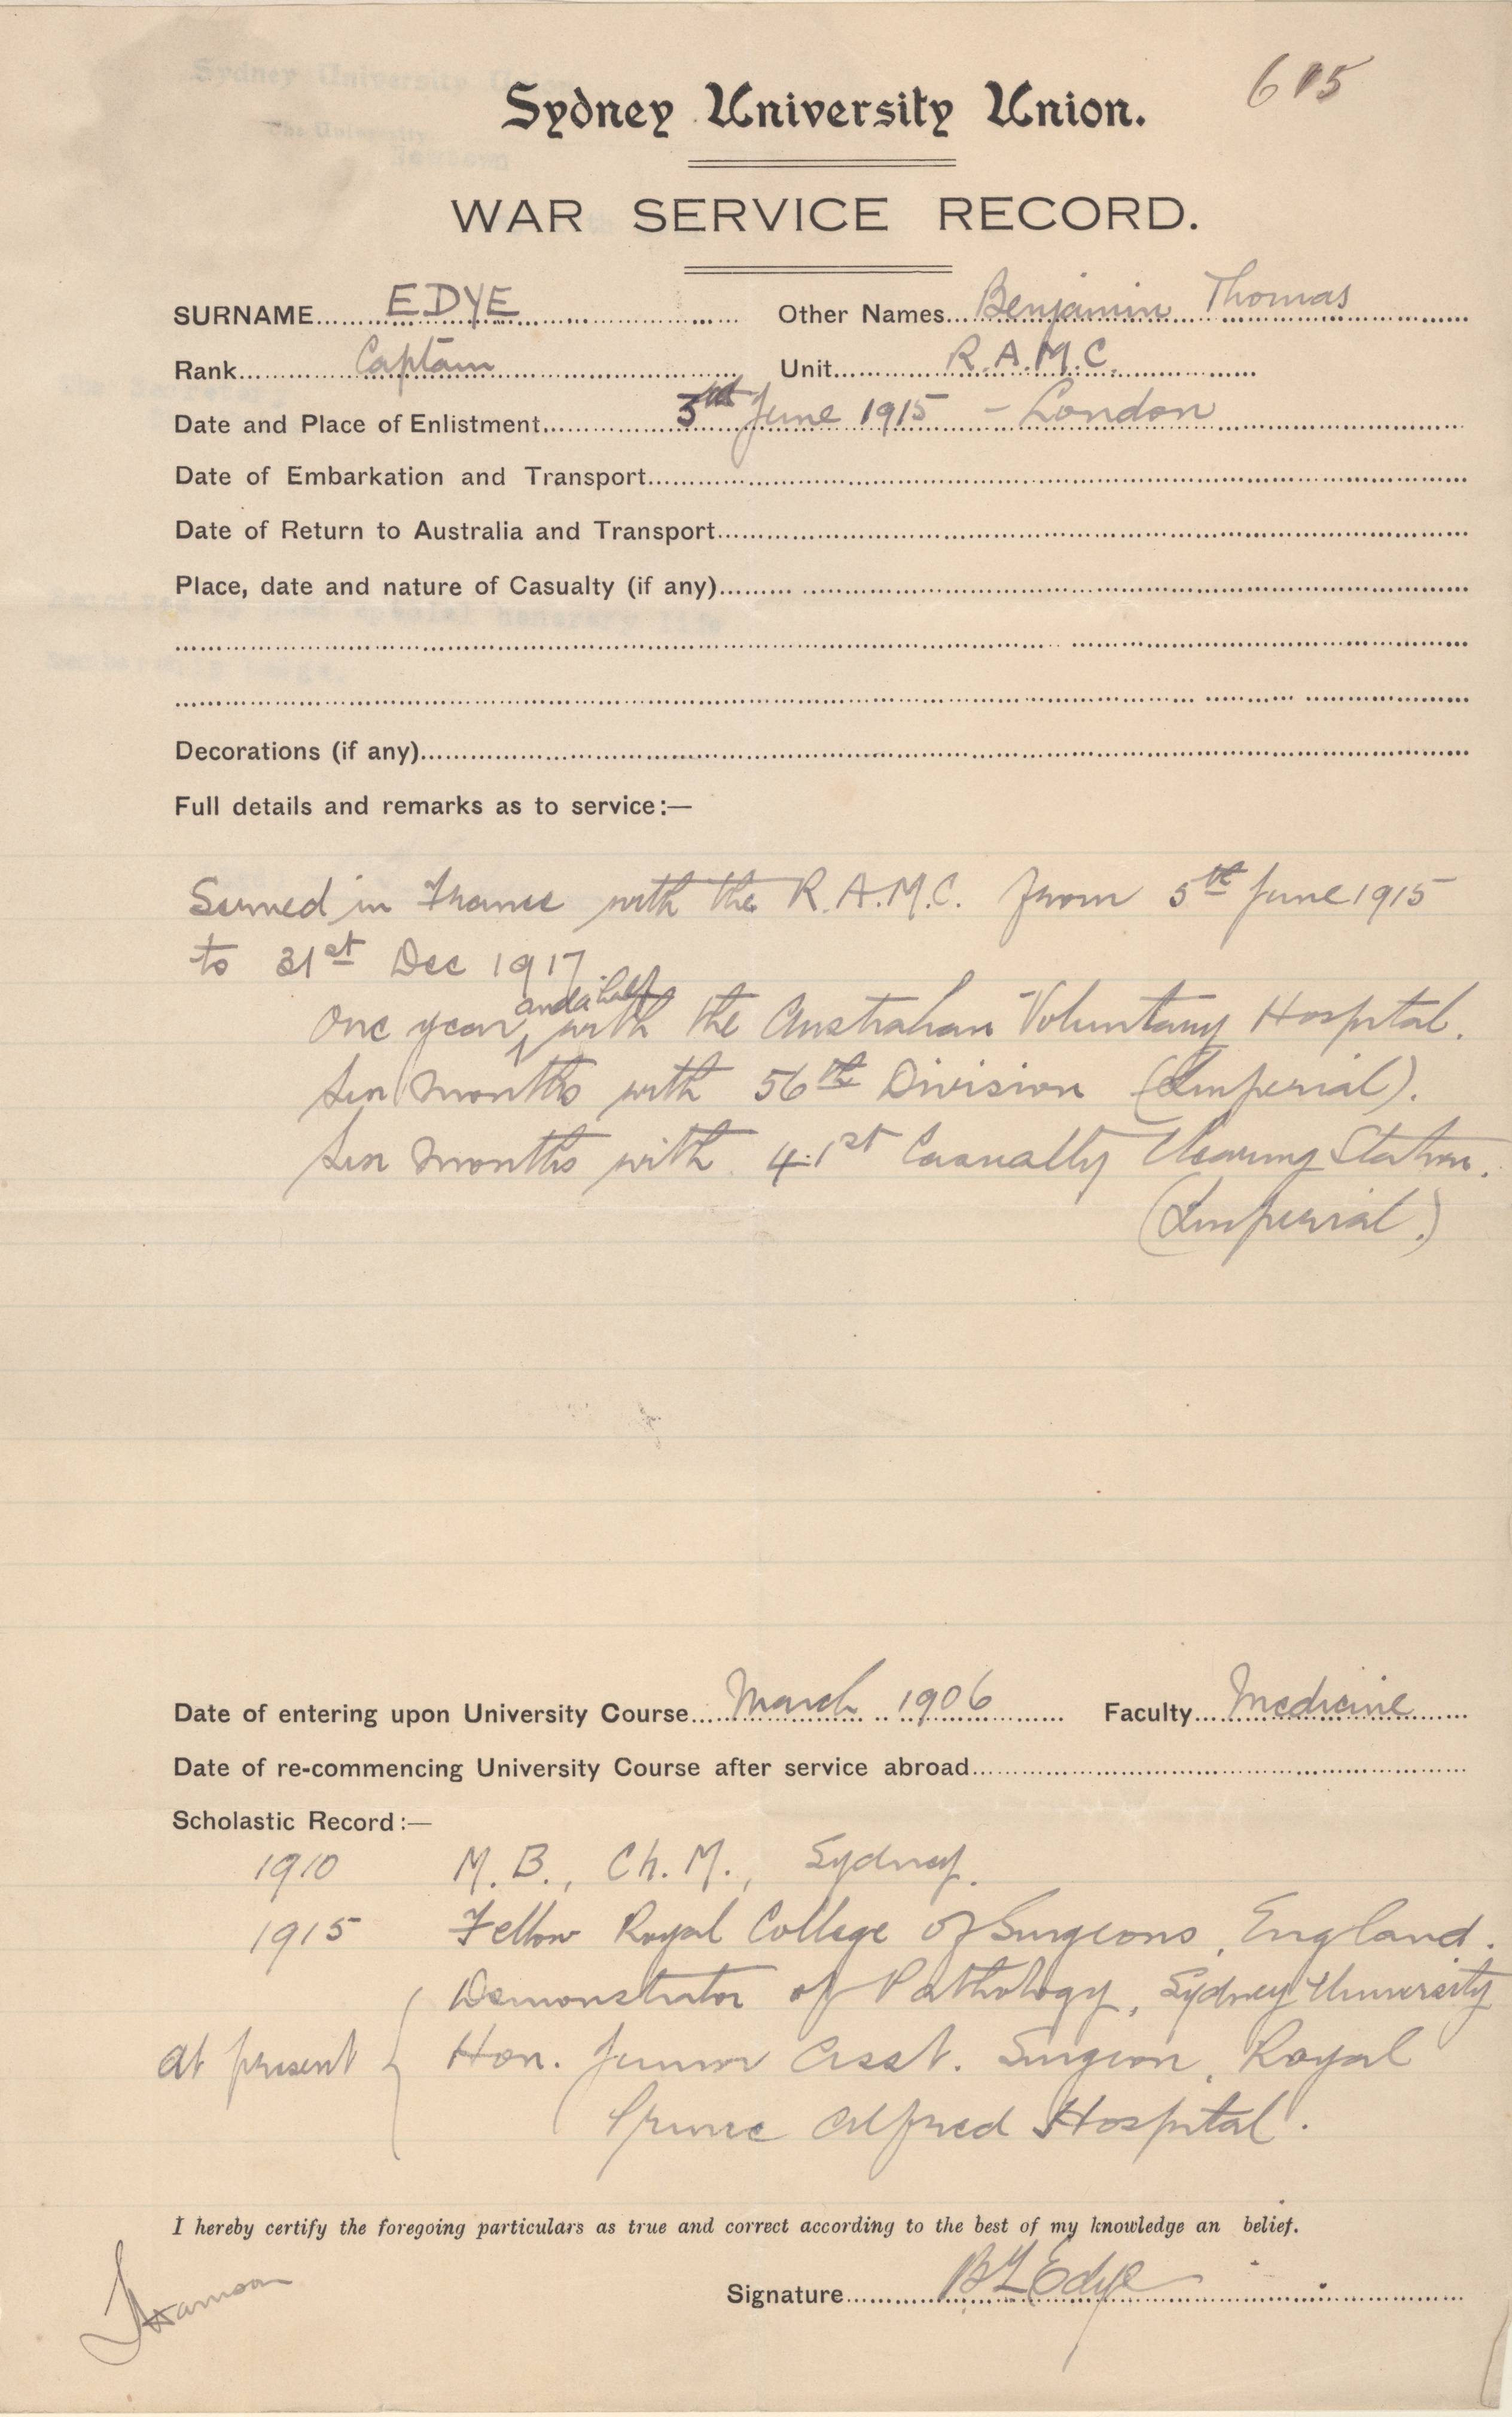 615
Sydney University Union.
WAR SERVICE RECORD.
SURNAME EDYE Other Names Benjamin Thomas
Rank Captain Unit R.A.M.C.
Date and Place of Enlistment 3rd June 1915 - London
Date of Embarkation and Transport
Date of Return to Australia and Transport
Place, date and nature of Casualty (if any)
Decorations (if any)
Full details and remarks as to service:—
Served in France with the R.A.M.C. from 5th June 1915
to 31st Dec 1917.
One year and a half with the Australian Voluntary Hospital.
Six months with 56th Division (Imperial).
Six months with 41st Casualty Clearing Station.
(Imperial.)
Date of entering upon University Course March 1906 Faculty Medicine
Date of re-commencing University Course after service abroad
Scholastic Record:—
1910 M.B., Ch.M., Sydney.
1915 Fellow Royal College of Surgeons, England.
Demonstrator of Pathology, Sydney University
at present { Hon. Junior Asst. Surgeon, Royal
Prince Alfred Hospital.
I hereby certify the foregoing particulars as true and correct according to the best of my knowledge an belief.
Signature B T Edye